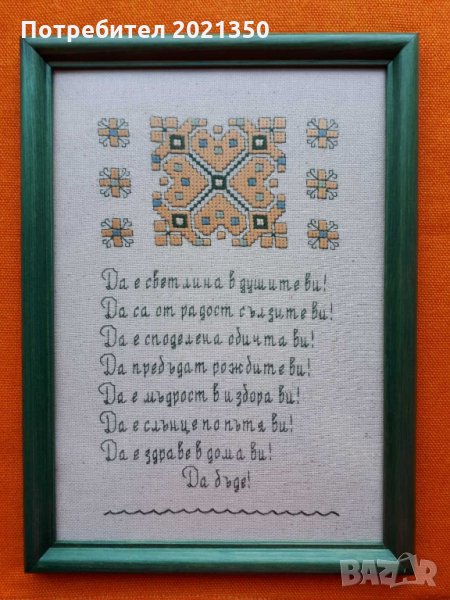 Потребител 2021350
Да е светлина в душите ви!
Да са от радост сълзите ви!
Да е споделена обичта ви!
Да пребъдат рожбите ви!
Да е мъдрост в избора ви!
Да е слънце по пътя ви!
Да е здраве в дома ви!
Да бъде!
BAZAR